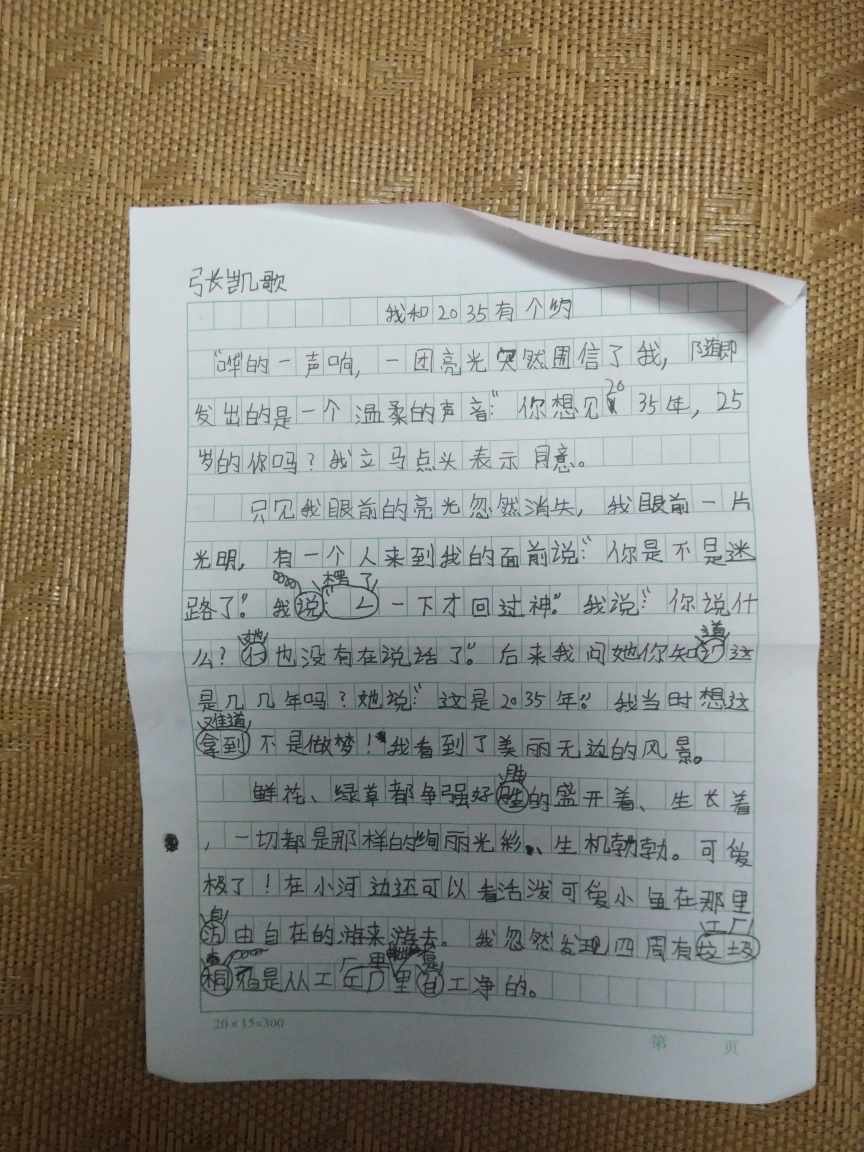 张凯歌
我和2035有个约
“哗”的一声响，一团亮光突然围住了我，随即
发出的是一个温柔的声音：“你想见2035年，25
岁的你吗？我立马点头表示同意。
只见我眼前的亮光忽然消失，我眼前一片
光明，有一个人来到我的面前说：“你是不是迷
路了”。我愣了一下才回过神”。我说：“你说什
么？她也没有在说话了”。后来我问她你知道这
是几几年吗？她说：“这是2035年”。我当时想这
难道不是做梦！我看到了美丽无边的风景。
鲜花、绿草都争强好胜的盛开着、生长着
，一切都是那样的绚丽光彩、生机勃勃。可爱
极了！在小河边还可以看活泼可爱小鱼在那里
自由自在的游来游去。我忽然发现四周有工厂
是从工厂里工净的。
20×15=300
第 页